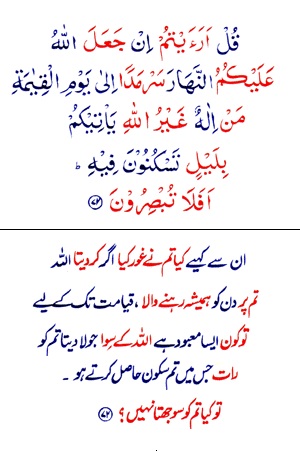 قُلْ اَرَءَيْتُمْ اِنْ جَعَلَ اللهُ
عَلَيْكُمُ النَّهَارَ سَرْمَدًا اِلىٰ يَوْمِ الْقِيٰمَةِ
مَنْ اِلٰهٌ غَيْرُ اللهِ يَاْتِيْكُمْ
بِلَيْلٍ تَسْكُنُوْنَ فِيْهِ ؕ
اَفَلَا تُبْصِرُوْنَ ﴿۷۲﴾
ان سے کہیے کیا تم نے غور کیا اگر کر دیتا اللہ
تم پر دن کو ہمیشہ رہنے والا ، قیامت تک کے لیے
تو کون ایسا معبود ہے اللہ کے سوا جو لا دیتا تم کو
رات جس میں تم سکون حاصل کرتے ہو ۔
تو کیا تم کو سوجھتا نہیں ؟ ﴿۷۲﴾